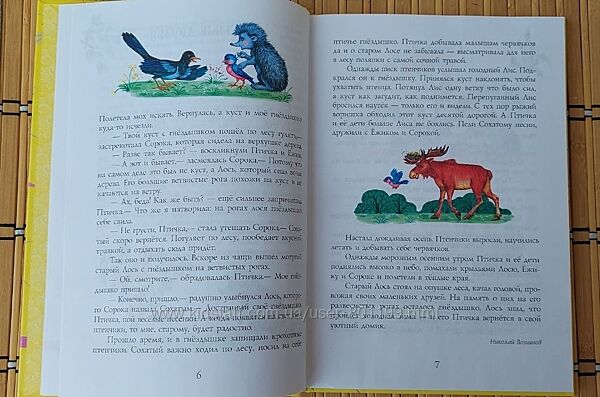 Полетела мох искать. Вернулась, а куст и моё гнёздышко
куда-то исчезли.
— Твой куст с гнёздышком пошёл по лесу гулять, —
застрекотала Сорока, которая сидела на верхушке дерева.
— Разве так бывает? — воскликнули Птичка и Ёжик.
— А вот и бывает, — засмеялась Сорока. — Потому что
на самом деле это был не куст, а Лось, который спал возле
дерева. Его большие ветвистые рога похожи на куст и не
качаются на ветру.
— Ах, беда! Как же быть? — ещё сильнее запричитала
Птичка. — Что же я натворила: на рогах лося гнёздышко
себе свила.
— Не грусти, Птичка, — стала утешать Сорока. — Соха-
тый скоро вернётся. Погуляет по лесу, пообедает вкусной
травкой, а отдыхать сюда придёт.
Так оно и получилось. Вскоре из чащи вышел могучий
старый Лось с гнёздышком на ветвистых рогах.
— Ой, смотрите, — обрадовалась Птичка. — Моё гнёз-
дышко пришло!
— Конечно, пришло, — радушно улыбнулся Лось, кото-
рого Сорока назвала
Птичка, пой весёлые песенки. А когда появятся на свет
птенчики, то мне, старому, будет радостно.
Прошло время, и в гнёздышке запищали крохотные
птенчики. Сохатый важно ходил по лесу, носил на себе
6
птичье гнёздышко. Птичка добывала малышам червячков
да и о старом Лосе не забывала — высматривала для него
в лесу полянки с самой сочной травой.
Однажды писк птенчиков услышал голодный Лис. Под-
крался он к гнёздышку. Принялся куст наклонять, чтобы
ухватить птенца. Потянул Лис одну ветку что было сил,
а куст как загудит, как поднимется. Перепуганный Лис
бросился наутёк — только его и видели. С тех пор рыжий
воришка обходил этот куст десятой дорогой. А Птичка
и её дети больше Лиса не боялись. Пели Сохатому песни,
дружили с Ёжиком и Сорокой.
Настала дождливая осень. Птенчики выросли, научились
летать и добывать себе червячков.
Однажды морозным осенним утром Птичка и её дети
поднялись высоко в небо, помахали крыльями Лосю, Ёжи-
ку и Сороке и полетели в тёплые края.
Старый Лось стоял на опушке леса, качал головой, про-
вожая своих маленьких друзей. На память о них на его
развесистых рогах осталось гнёздышко. Лось знал, что
Птичка вернётся в свой
уютный домик.
Николай Волканов
7